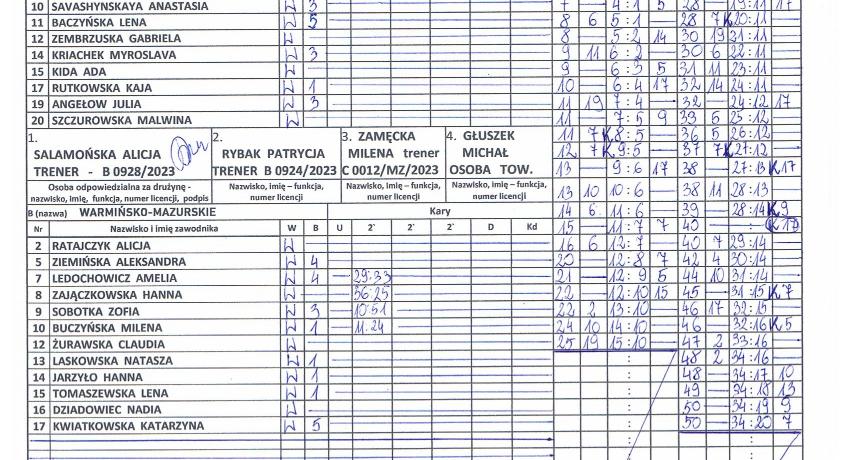 10 SAVASHYNSKAYA ANASTASIA W 3 7 4:1 5 28 19:11 17
11 BACZYŃSKA LENA W 5 8 6 5:1 28 7K 20:11
12 ZEMBRZUSKA GABRIELA W 8 5:2 14 30 19 21:11
14 KRIACHEK MYROSLAVA W 3 9 11 6:2 30 6 22:11
15 KIDA ADA W 9 6:3 5 31 11 23:11
17 RUTKOWSKA KAJA W 1 10 6:4 17 32 14 24:11
19 ANGEŁOW JULIA W 3 11 19 7:4 32 24:12 17
20 SZCZUROWSKA MALWINA W 11 7:5 9 33 5 25:12
11 7K 8:5 36 5 26:12
12 7K 9:5 37 7K 27:12
13 9:6 17 38 27:13 K17
13 10 10:6 38 11 28:13
1. SALAMOŃSKA ALICJA
TRENER - B 0928/2023
2. RYBAK PATRYCJA
TRENER B 0924/2023
3. ZAMĘCKA
MILENA trener
C 0012/MZ/2023
4. GŁUSZEK
MICHAŁ
OSOBA TOW.
Osoba odpowiedzialna za drużynę -
nazwisko, imię, funkcja, numer licencji, podpis
Nazwisko, imię – funkcja,
numer licencji
Nazwisko, imię – funkcja,
numer licencji
Nazwisko, imię – funkcja,
numer licencji
B (nazwa) WARMIŃSKO-MAZURSKIE Kary 14 6 11:6 39 28:14 K9
Nr Nazwisko i imię zawodnika W B U 2` 2` 2` D Kd 15 11:7 7 40 : K17
2 RATAJCZYK ALICJA W 16 6 12:7 40 7 29:14
5 ZIEMIŃSKA ALEKSANDRA W 4 20 12:8 7 42 4 30:14
7 LEDOCHOWICZ AMELIA W 4 29:33 21 12:9 5 44 10 31:14
8 ZAJĄCZKOWSKA HANNA W 36:25 22 12:10 15 45 31:15 K7
9 SOBOTKA ZOFIA W 3 10:51 22 2 13:10 46 17 32:15
10 BUCZYŃSKA MILENA W 1 11:24 24 10 14:10 46 32:16 K5
12 ŻURAWSKA CLAUDIA W 25 19 15:10 47 2 33:16
13 LASKOWSKA NATASZA W 1 : 48 2 34:16
14 JARZYŁO HANNA W 1 : 48 34:17 10
15 TOMASZEWSKA LENA W 1 : 49 34:18 13
16 DZIADOWIEC NADIA W : 50 34:19 9
17 KWIATKOWSKA KATARZYNA W 5 : 50 34:20 7